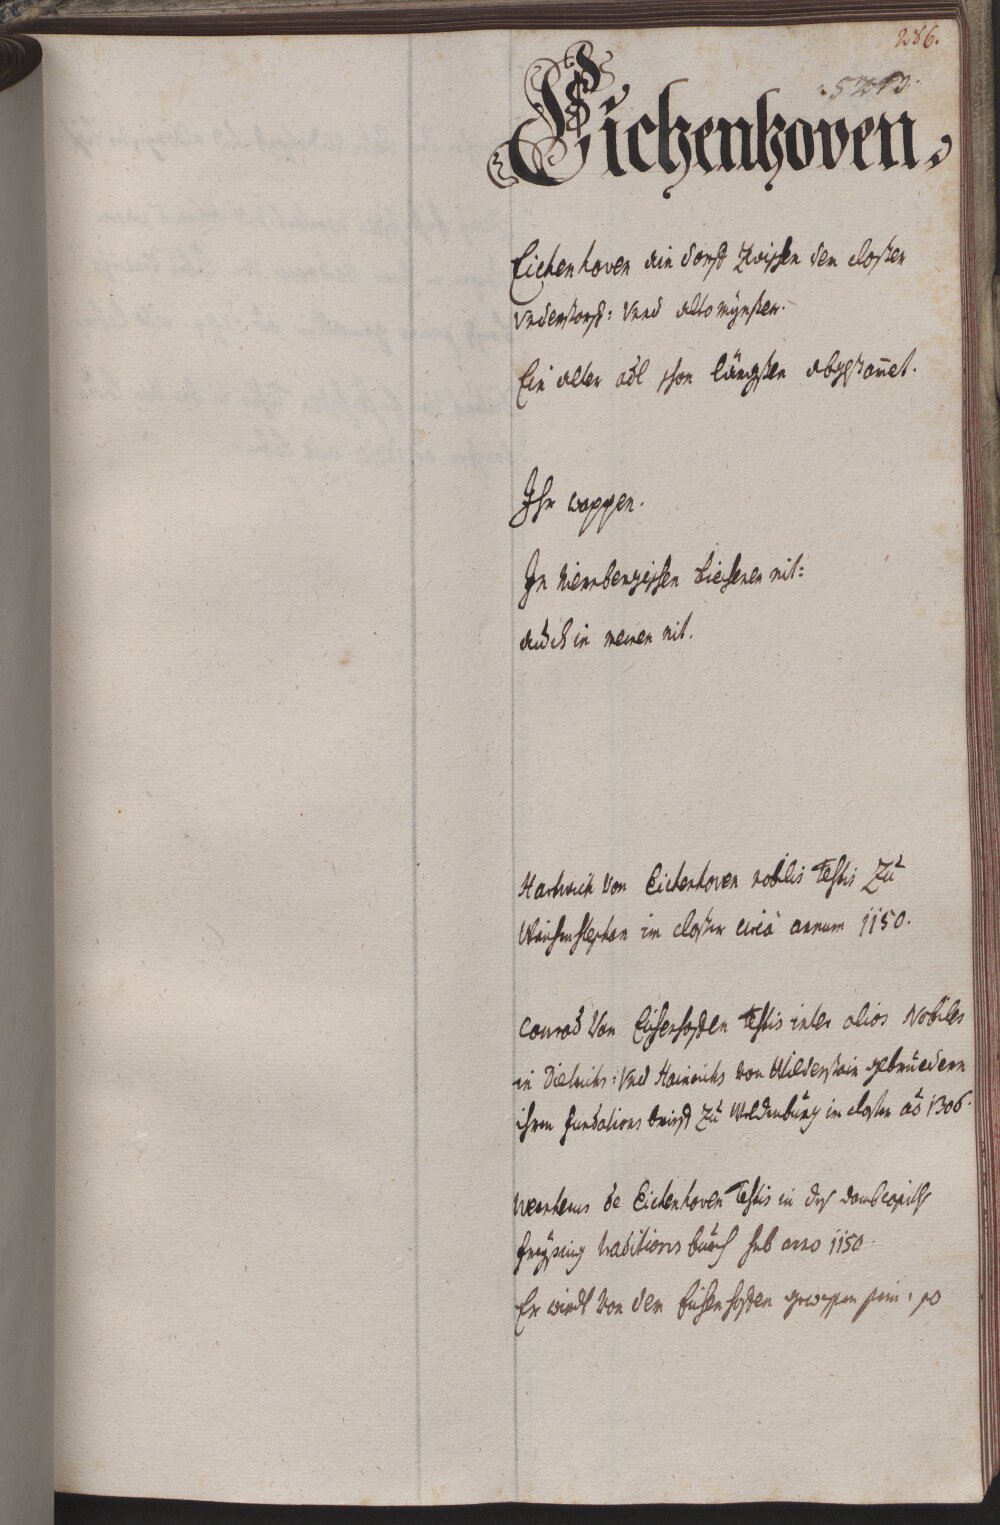 286.
Eichenhoven.
Eichenhoven ain dorff zwischen den closter
Understorff: Und altomynster.
Ein alter adl schon längsten abgestorben.
Ihr wappen.
In Niernbergischen biecheren nit:
auch in meinen nit.
Hartwich Von Eichenhoven nobilis testis Zu
Weichenstephan im closter circa annum 1150.
Conrad Von Eisenhoffen testis inter alios Nobiles
in Dietrichs: Und Hainrichs von Wildenstain gebruedern
ihren fundations brieff Zu im closter aõ 1306.
de Eichenhoven testis in des dombcapitls
Freysing traditions buech sub anno 1150
Er wirdt Von den Eisenhoffen gewessen sein, so